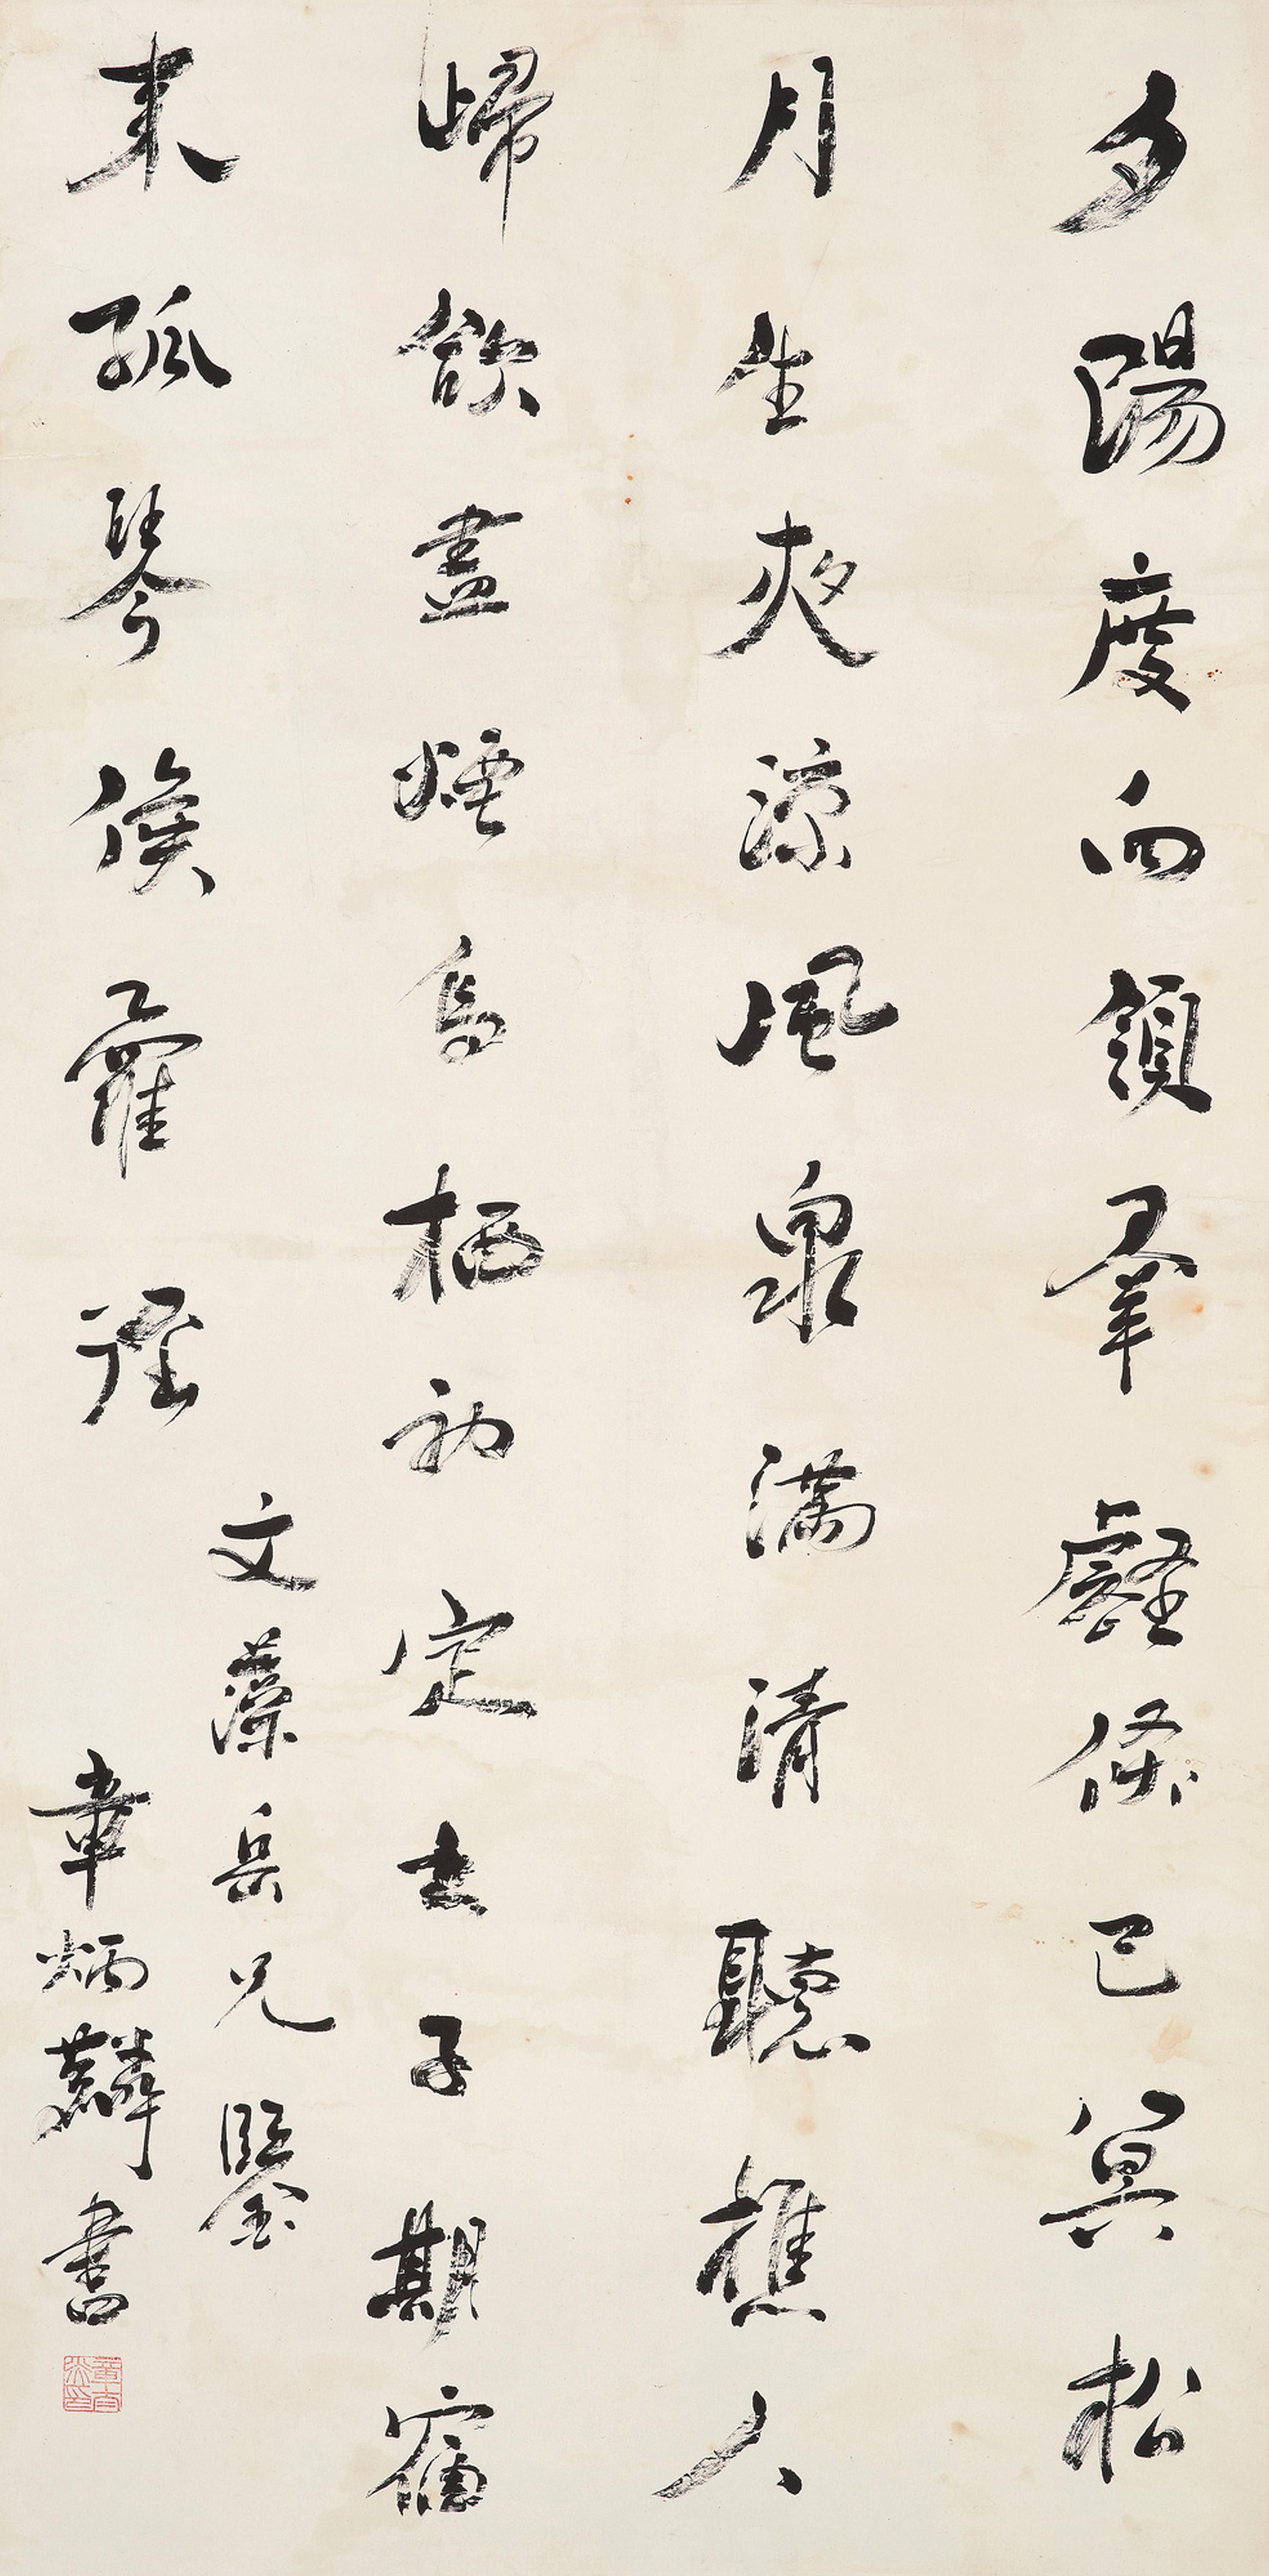 夕陽度西領羣壑倏已冥松
月生夜涼風泉滿清聽樵人
歸欲盡煙鳥栖初定之子期宿
來孤琴候蘿徑
文藻岳兄鑒
章炳麟書
章太炎印